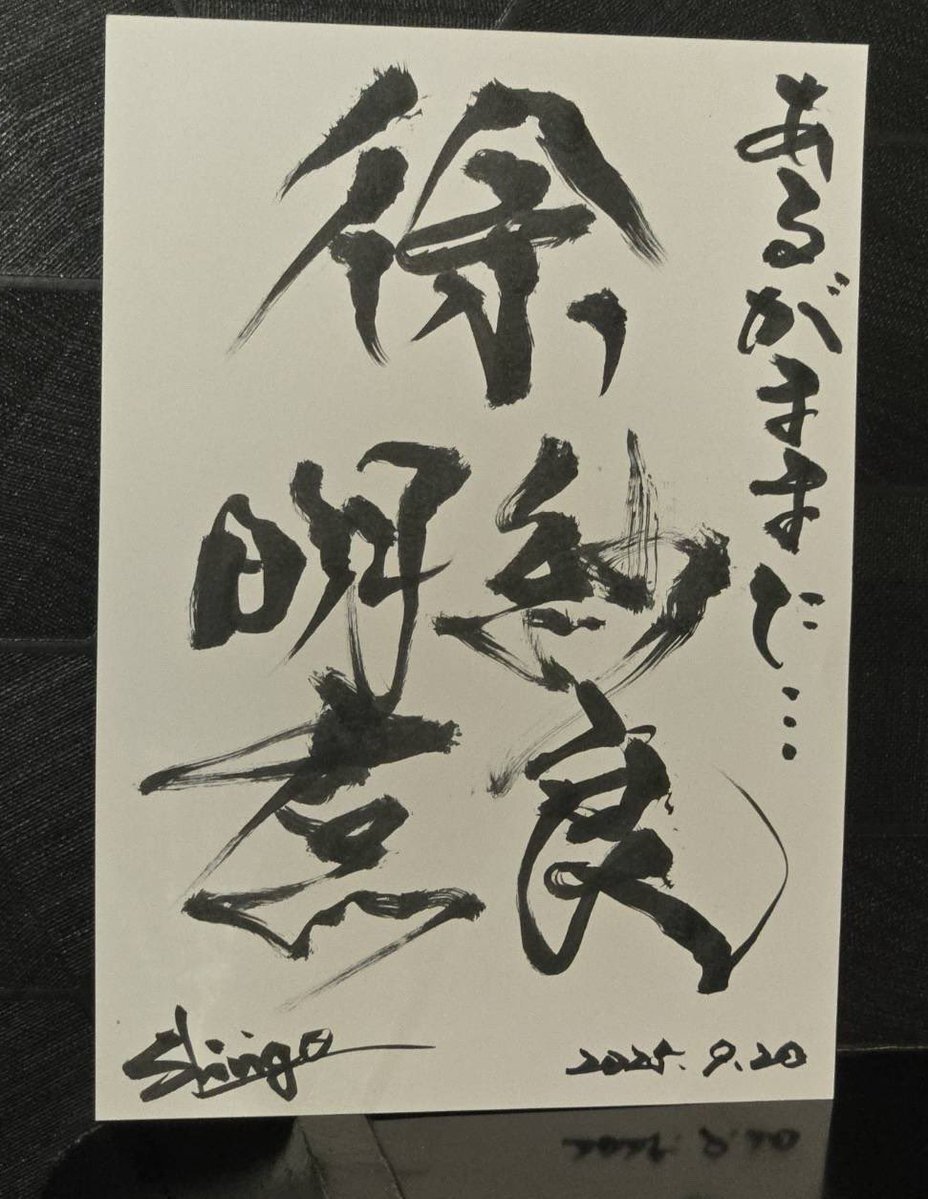 あるがままに…
徐
紗良
明
Shingo
2025.9.20